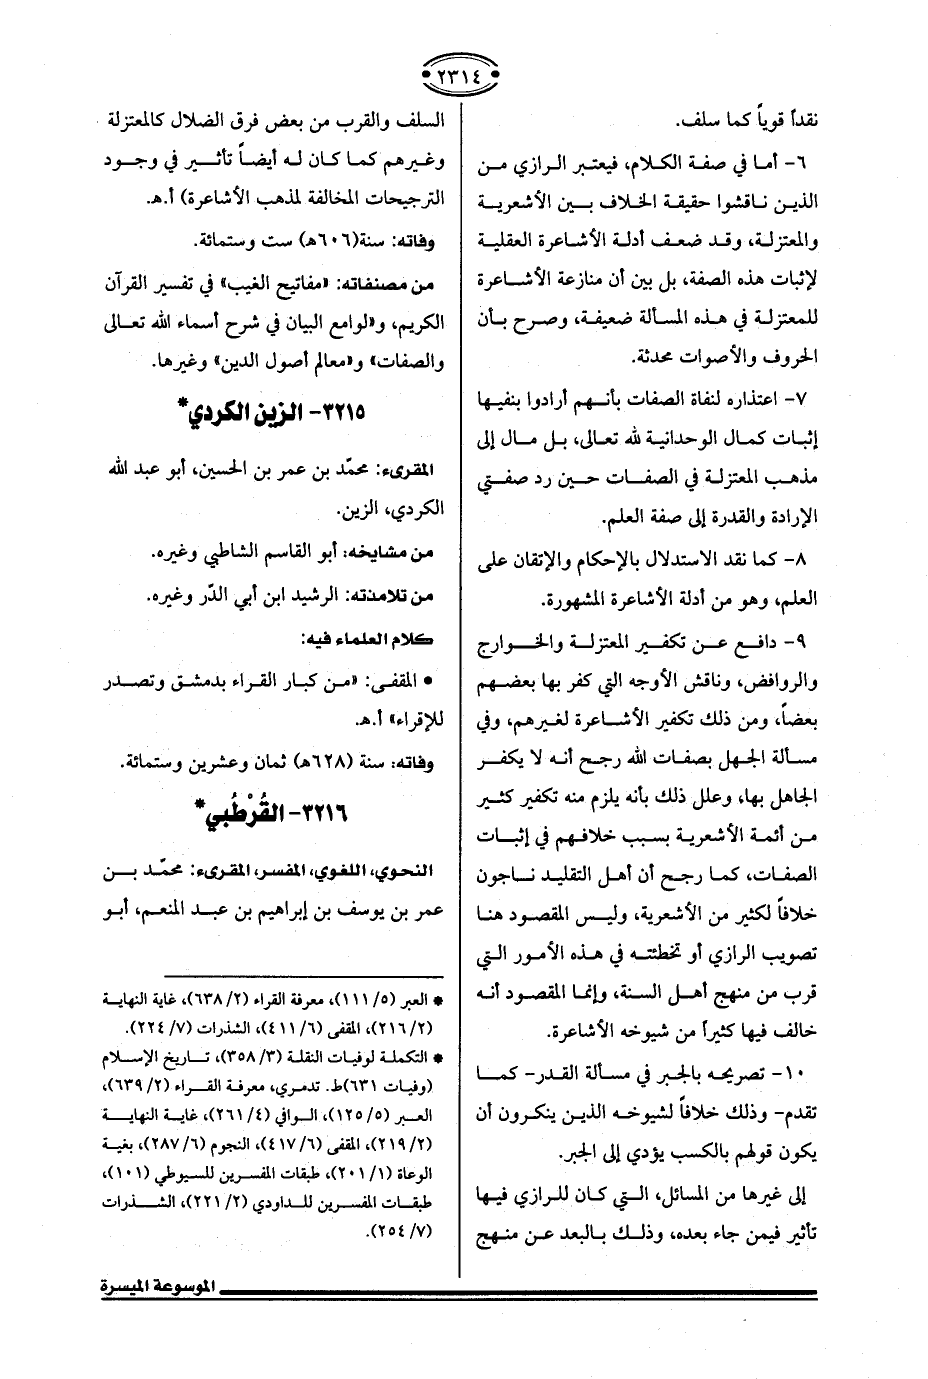 ٢٣١٤
نقداً قوياً كما سلف.
٦- أما في صفة الكلام، فيعتبر الرازي من
الذين ناقشوا حقيقة الخلاف بين الأشعرية
والمعتزلة، وقد ضعف أدلة الأشاعرة العقلية
لإثبات هذه الصفة، بل بين أن منازعة الأشاعرة
للمعتزلة في هذه المسألة ضعيفة، وصرح بأن
الحروف والأصوات محدثة.
٧- اعتذاره لنفاة الصفات بأنهم أرادوا بنفيها
إثبات كمال الوحدانية لله تعالى، بل مال إلى
مذهب المعتزلة في الصفات حين رد صفتي
الإرادة والقدرة إلى صفة العلم.
٨- كما نقد الاستدلال بالإحكام والإتقان على
العلم، وهو من أدلة الأشاعرة المشهورة.
٩- دافع عن تكفير المعتزلة والخوارج
والروافض، وناقش الأوجه التي كفر بها بعضهم
بعضاً، ومن ذلك تكفير الأشاعرة لغيرهم، وفي
مسألة الجهل بصفات الله رجح أنه لا يكفر
الجاهل بها، وعلل ذلك بأنه يلزم منه تكفير كثير
من أئمة الأشعرية بسبب خلافهم في إثبات
الصفات، كما رجح أن أهل التقليد ناجون
خلافاً لكثير من الأشعرية، وليس المقصود هنا
تصويب الرازي أو تخطئته في هذه الأمور التي
قرب من منهج أهل السنة، وإنما المقصود أنه
خالف فيها كثيراً من شيوخه الأشاعرة.
١٠- تصريحه بالجبر في مسألة القدر- كما
تقدم- وذلك خلافاً لشيوخه الذين ينكرون أن
يكون قولهم بالكسب يؤدي إلى الجبر.
إلى غيرها من المسائل، التي كان للرازي فيها
تأثير فيمن جاء بعده، وذلك بالبعد عن منهج
السلف والقرب من بعض فرق الضلال كالمعتزلة
وغيرهم كما كان له أيضاً تأثير في وجود
الترجيحات المخالفة لمذهب الأشاعرة) أ.هـ.
وفاته: سنة(٦٠٦هـ) ست وستمائة.
من مصنفاته: «مفاتيح الغيب» في تفسير القرآن
الكريم، و«لوامع البيان في شرح أسماء الله تعالى
والصفات» و«معالم أصول الدين» وغيرها.
٣٢١٥- الزين الكردي*
المقرىء: محمّد بن عمر بن الحسين، أبو عبد الله
الكردي، الزين.
من مشايخه: أبو القاسم الشاطبي وغيره.
من تلامذته: الرشيد ابن أبي الدّر وغيره.
كلام العلماء فيه:
• المقفى: «من كبار القراء بدمشق وتصدر
للإقراء» أ.هـ.
وفاته: سنة (٦٢٨هـ) ثمان وعشرين وستمائة.
٣٢١٦- القُرْطُبي*
النحوي، اللغوي، المفسر، المقرىء: محمّد بن
عمر بن يوسف بن إبراهيم بن عبد المنعم، أبو
* العبر (٥/ ١١١)، معرفة القراء (٢/ ٦٣٨)، غاية النهاية
(٢/ ٢١٦)، المقفى (٦/ ٤١١)، الشذرات (٧/ ٢٢٤).
* التكملة لوفيات النقلة (٣/ ٣٥٨)، تاريخ الإسلام
(وفيات ٦٣١)ط. تدمري، معرفة القراء (٢/ ٦٣٩)،
العبر (٥/ ١٢٥)، الوافي (٤/ ٢٦١)، غاية النهاية
(٢/ ٢١٩)، المقفى (٦/ ٤١٧)، النجوم (٦/ ٢٨٧)، بغية
الوعاة (١/ ٢٠١)، طبقات المفسرين للسيوطي (١٠١)،
طبقات المفسرين للداودي (٢/ ٢٢١)، الشذرات
(٧/ ٢٥٤).
الموسوعة الميسرة